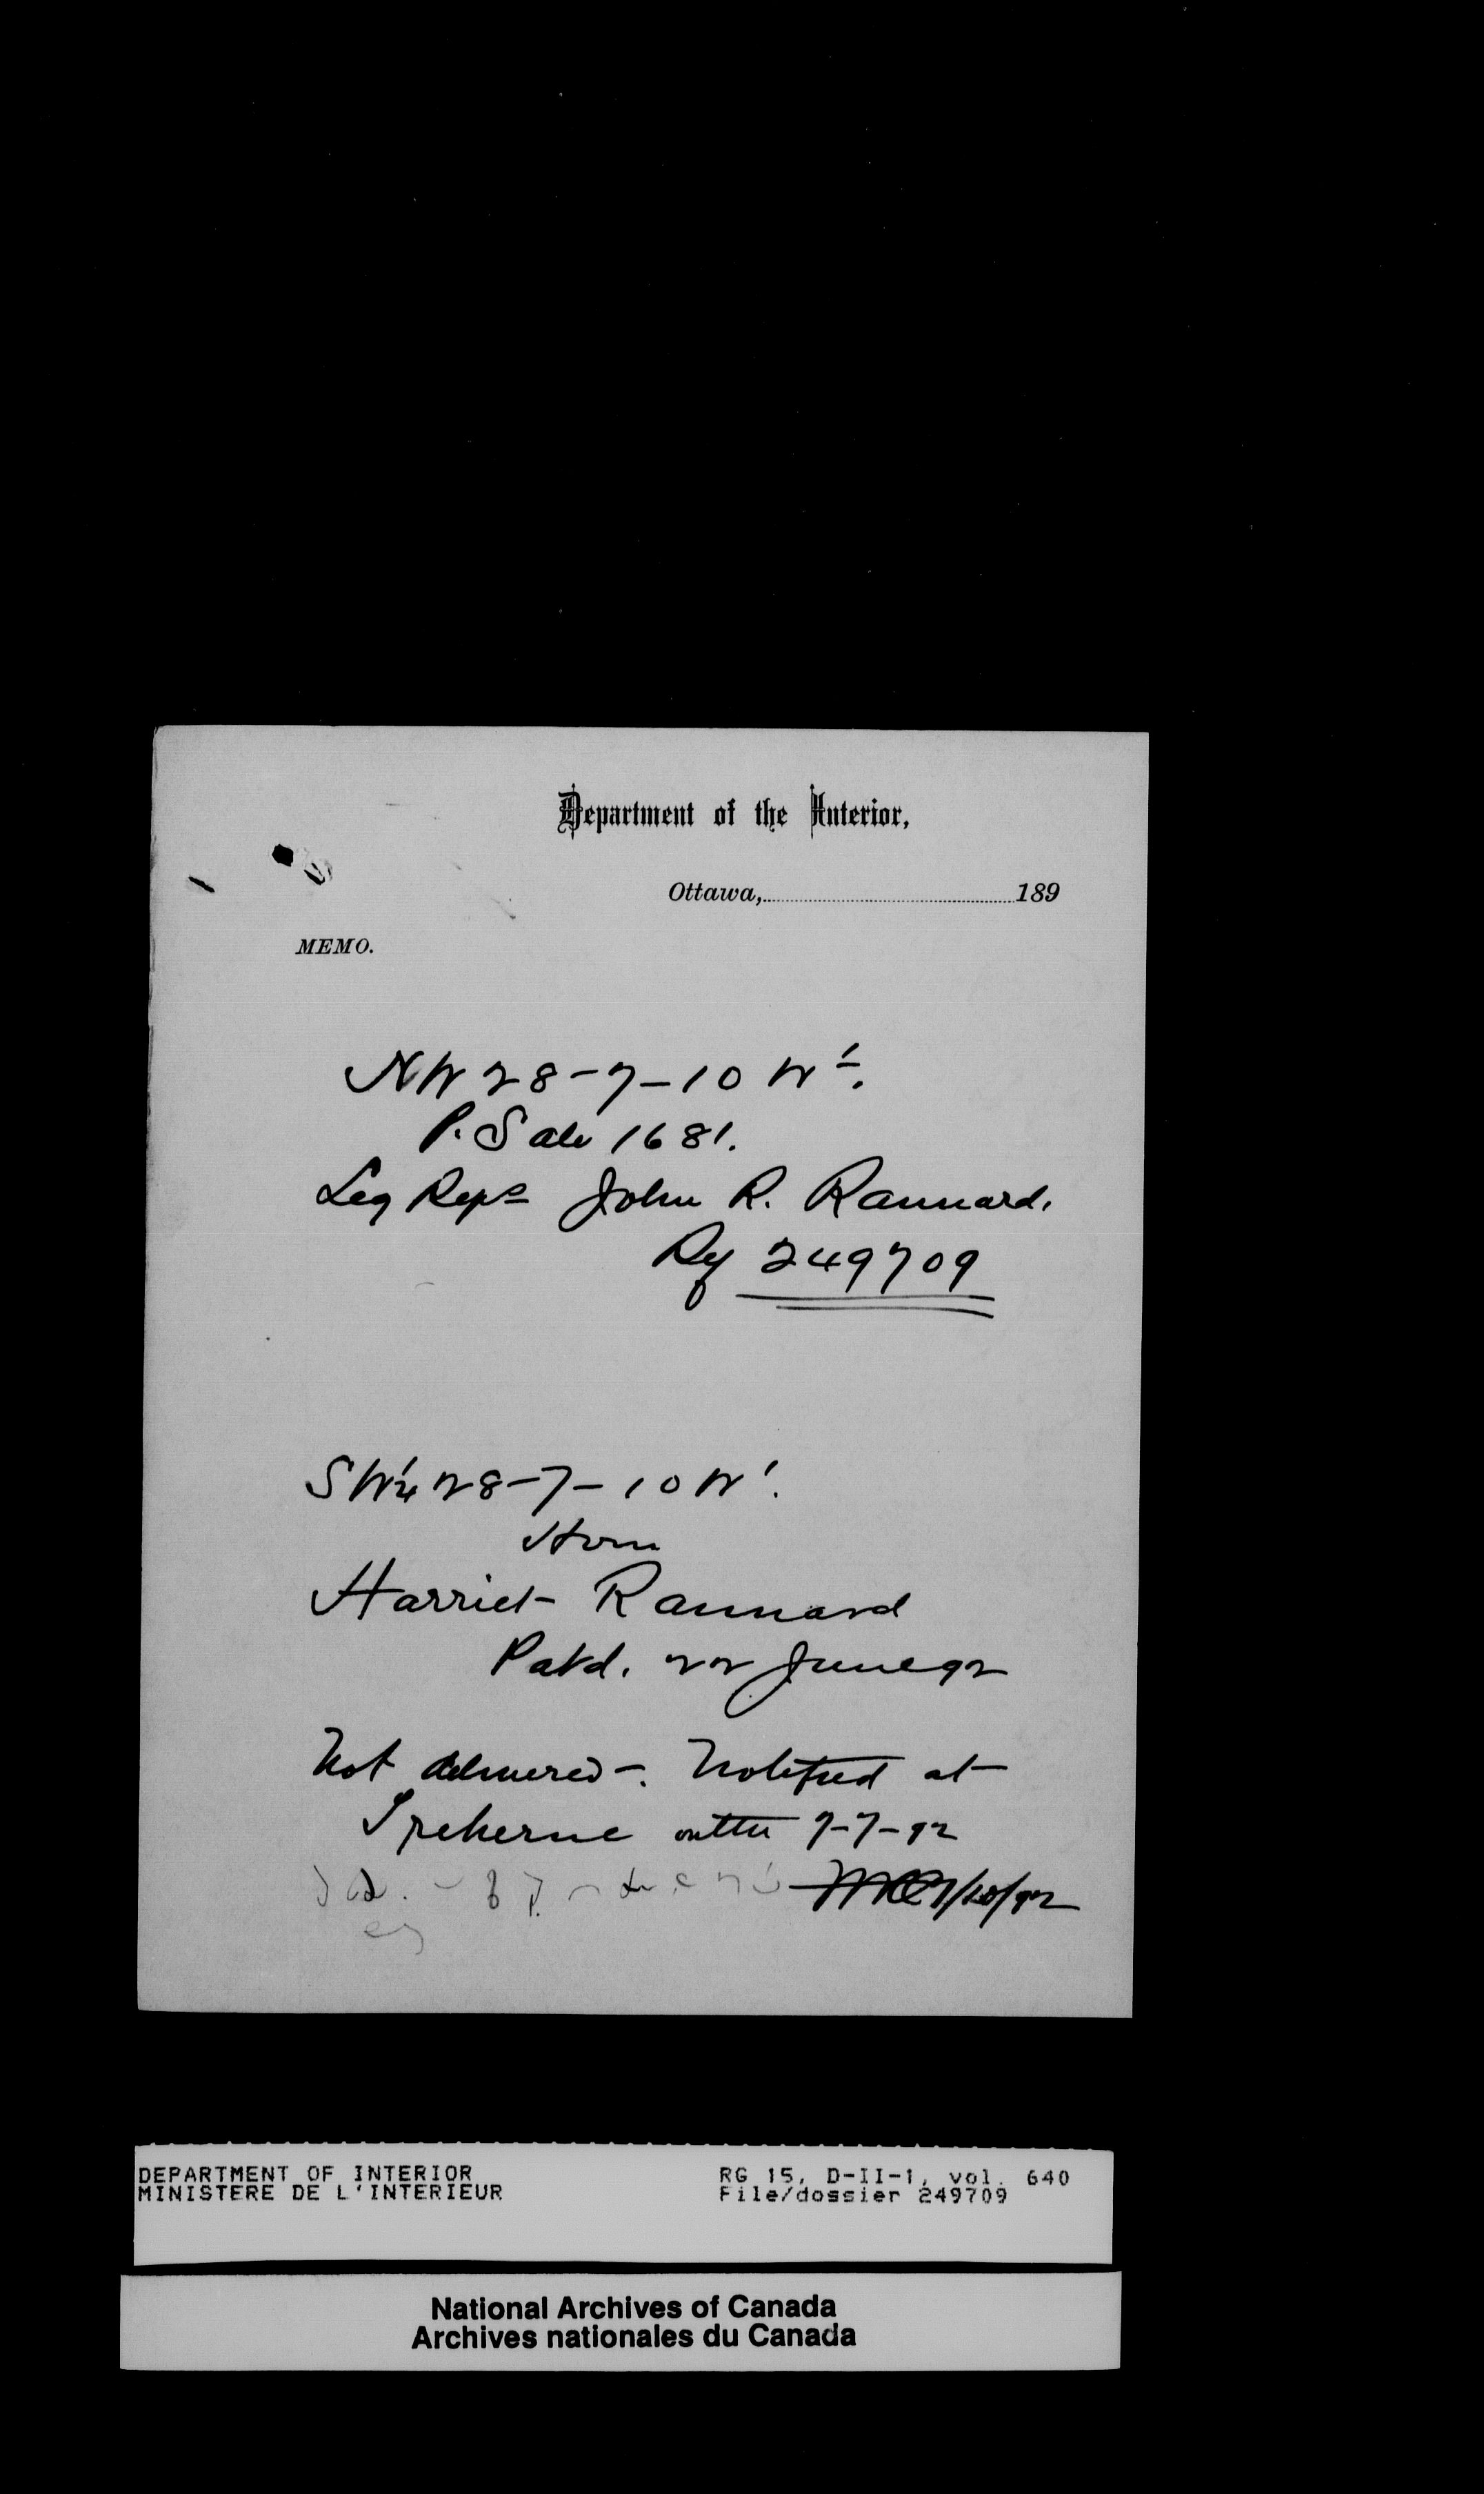 Department of the Interior,
Ottawa,..............................189
MEMO.
NW 28-7-10 W 1.
P. Sale 1681.
Leg Reps John R. Rannard.
Rf 249709
SW¼ 28-7-10 W 1.
Hom
Harriet Rannard
Patd. 22 June 92
Not delivered -. Notified at
Treherne 7-7-92
7/10/92
DEPARTMENT OF INTERIOR
MINISTERE DE L'INTERIEUR
RG 15, D-II-1, vol. 640
File/dossier 249709
National Archives of Canada
Archives nationales du Canada